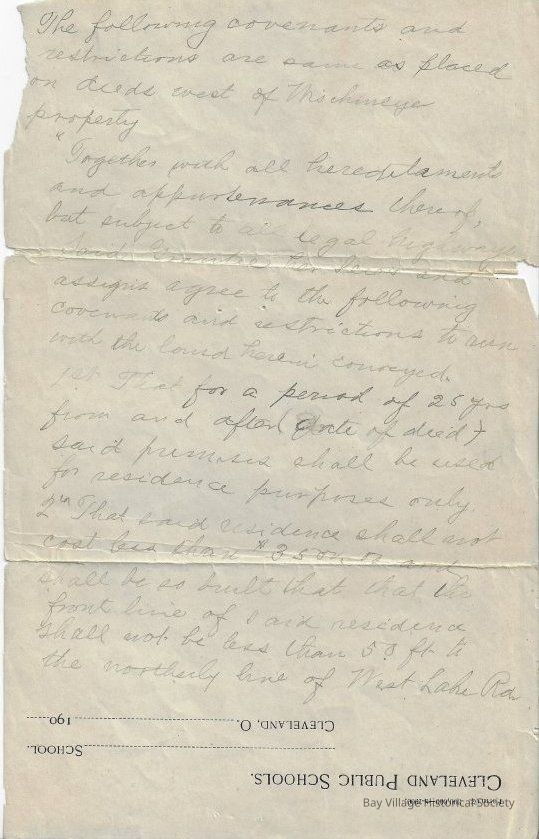 The following covenants and
restrictions are same as placed
on deeds west of
property
"Together with all hereditaments
and appurtenances thereof,
but subject to all legal highways
Said Grantee her heirs and
assigns agree to the following
covenants and restrictions to run
with the land herein conveyed.
1st That for a period of 25 yrs
from and after (date of died)
said premises shall be used
for residence purposes only.
2nd That said residence shall not
cost less than $ and
shall be so built that that the
front line of said residence
shall not be less than 50 ft to
the northerly line of West Lake Rd
CLEVELAND, O. 190
SCHOOL.
CLEVELAND PUBLIC SCHOOLS.
Bay Village Historical Society